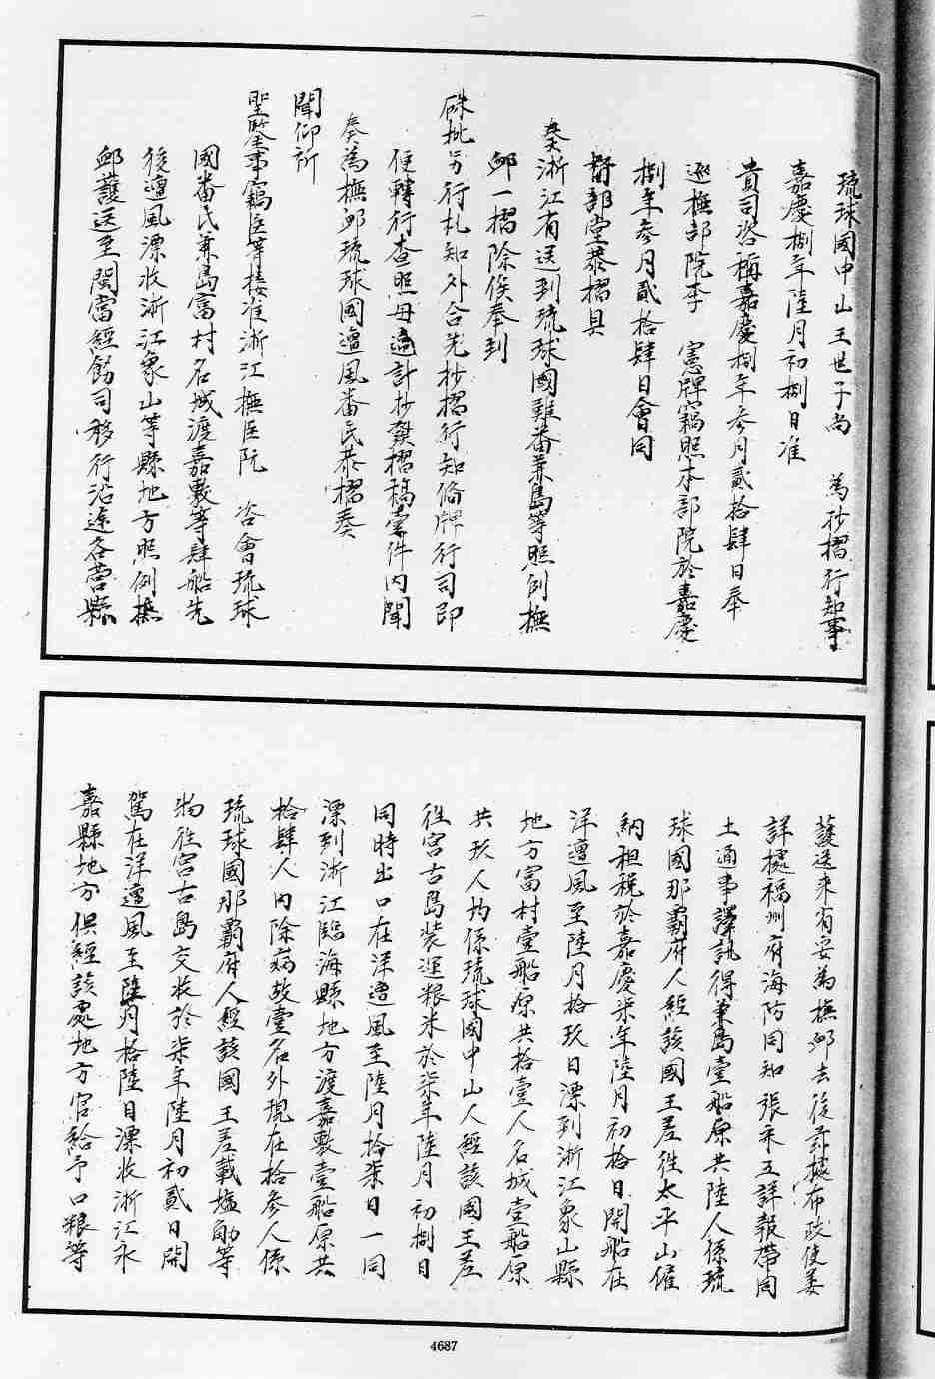 琉球國中山王世子尚　為抄摺行知事
嘉慶捌年陸月初捌日准
貴司咨稱嘉慶捌年參月貳拾肆日奉
巡撫部院李　憲牌竊照本部院於嘉慶
捌年參月貳拾肆日會同
督部堂恭摺具
奏浙江有送到琉球國難番兼島等照例撫
卹一摺除俟奉到
硃批另行札知外合先抄摺行知備牌行司即
便轉行查照毋違計抄發摺稿壹件內開
奏為撫卹琉球國遭風番民恭摺奏
聞仰祈
聖鑒事竊臣等接准浙江撫臣阮　咨會琉球
國番民兼島富村名城渡嘉敷等肆船先
後遭風漂收浙江象山等縣地方照例撫
卹護送至閩當經飭司移行沿途各營縣
護送來省妥為撫卹去後茲據布政使姜
詳據福州府海防同知張采五詳報帶同
土通事譯訊得兼島壹船原共陸人係琉
球國那霸府人經該國王差往太平山催
納租稅於嘉慶柒年陸月初拾日開船在
洋遭風至陸月拾玖日漂到浙江象山縣
地方富村壹船原共拾壹人名城壹船原
共玖人均係琉球國中山人經該國王差
往宮古島裝運粮米於柒年陸月初捌日
同時出口在洋遭風至陸月拾柒日一同
漂到浙江臨海縣地方渡嘉敷壹船原共
拾肆人內除病故壹名外現在拾參人係
琉球國那霸府人經該國王差載塩觔等
物往宮古島交收於柒年陸月初貳日開
駕在洋遭風至陸月拾陸日漂收浙江永
嘉縣地方俱經該處地方官給予口粮等
4687